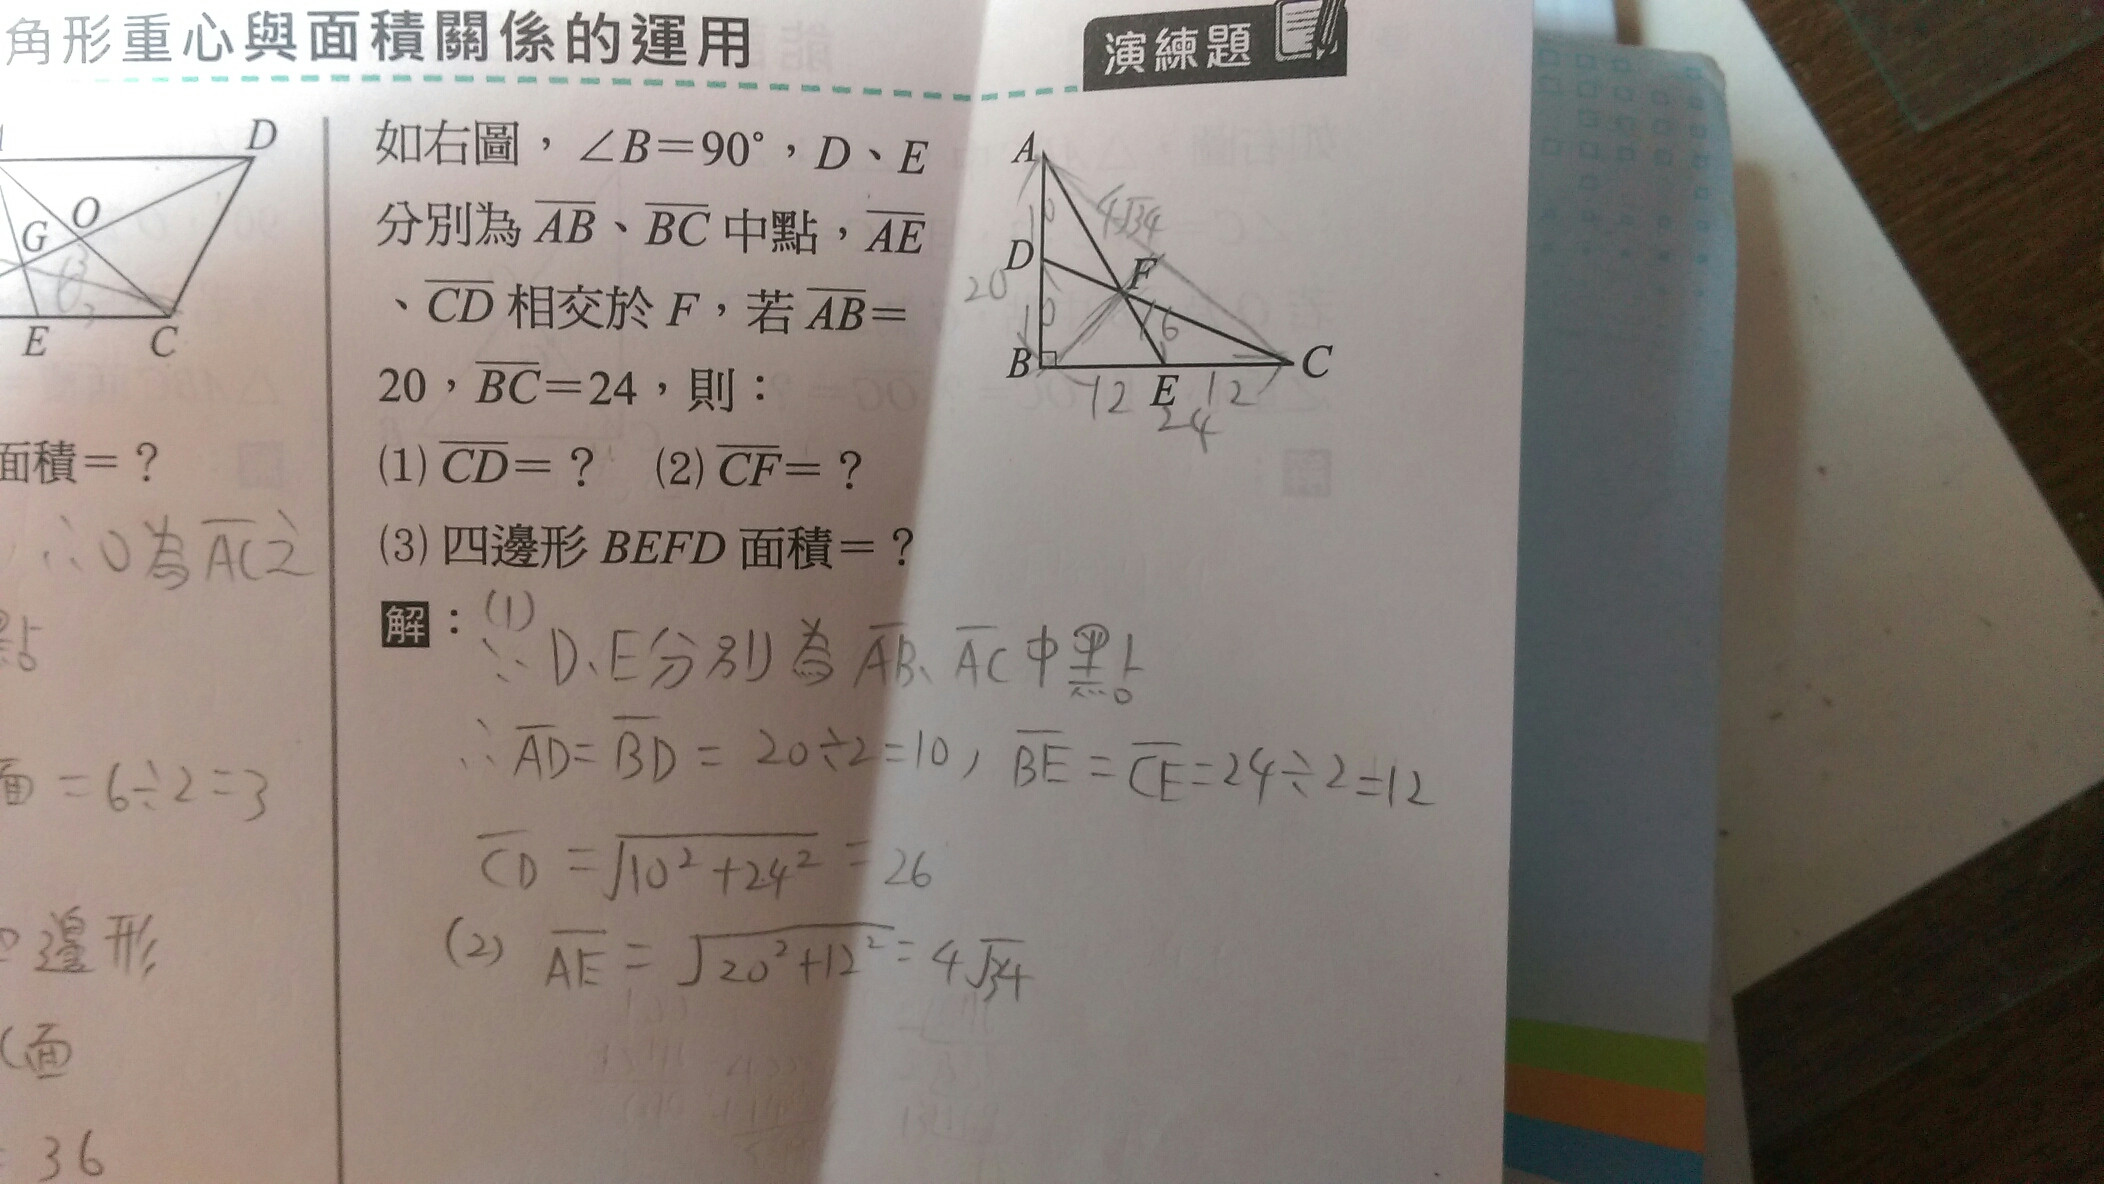 角形重心與面積關係的運用
演練題
D
O
G
E
C
面積=？
∴O為AC之
點
面=6÷2=3
邊形
面
36
如右圖，∠B=90°，D、E
分別為AB、BC中點，AE
、CD相交於F，若AB=
20，BC=24，則：
(1) CD=？ (2) CF=？
(3) 四邊形BEFD面積=？
A
4√34
10
D
F
20
10
16
B
C
12
E
12
24
解：(1)
∵D、E分別為AB、AC中點
∴AD=BD=20÷2=10，BE=CE=24÷2=12
CD=√10²+24²=26
(2) AE=√20²+12²=4√34